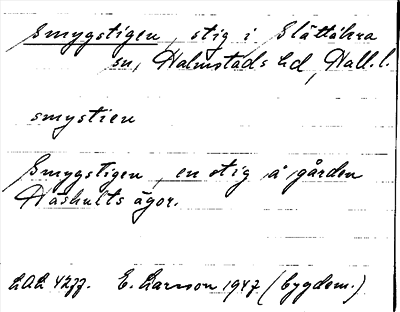 Smygstigen, stig i Slättåkra
sn, Halmstads hd, Hall. l.
smystien
Smygstigen, en stig å gården
Håshults ägor.
E. Larsson 1947 (bygdem.)